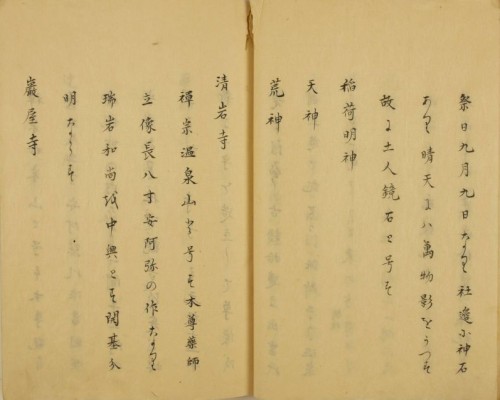 祭日九月九日なり社邊に神石
あり晴天には萬物影をうつす
故に土人鏡石と号す
稲荷明神
天神
荒神
清岩寺
禅宗温泉山と号す本尊薬師
立像長八寸安阿弥の作なり
瑞岩和尚を中興とす開基分
明ならす
巌屋寺